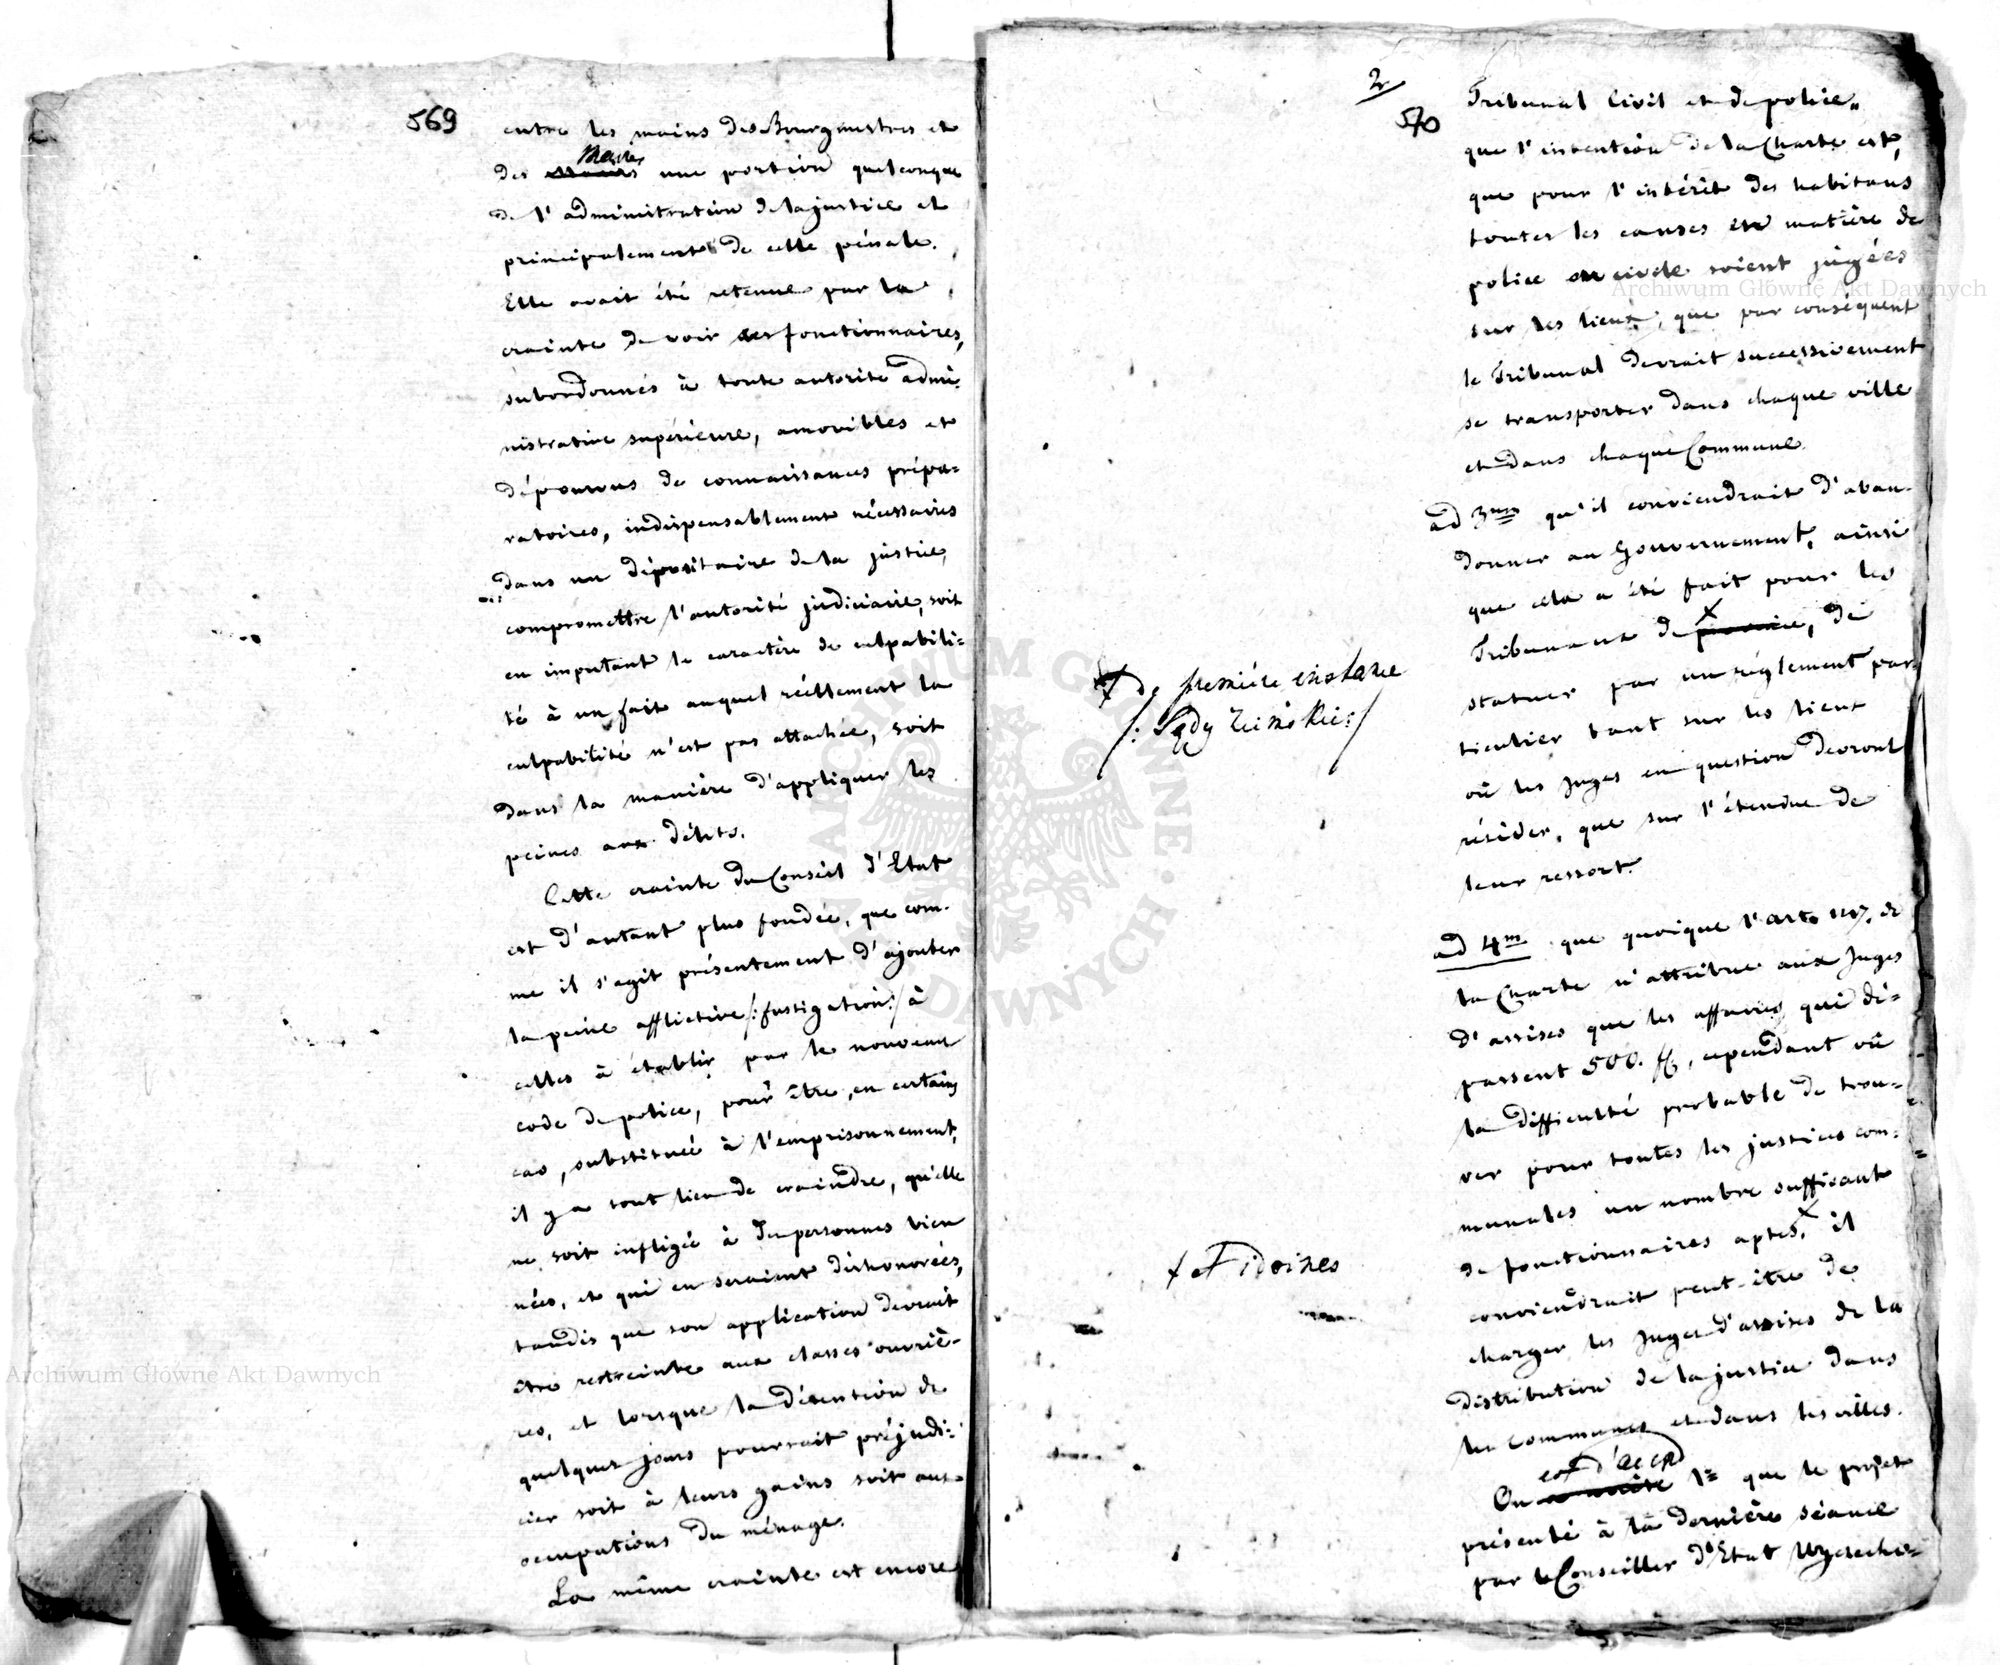 569
entre les mains des Bourgmestres et
Maires
des maires une portion quelconque
de l'adminitration de la justice et
principalement de celle pénale.
Elle avait été retenue par la
crainte de voir ces fonctionnaires,
subordonnés à toute autorité admi-
nistrative supérieure, amovibles et
dépourvus de connaissances prépa-
ratoires, indispensablement nécessaires
dans un dépositaire de la justice,
compromettre l'autorité judiciaire, soit
en imputant le caractère de culpabili-
té à un fait auquel réellement la
culpabilité n'est pas attachée, soit
dans la manière d'appliquer les
peines aux délits.
Cette crainte du Conseil d'Etat
est d'autant plus fondée, que com-
me il s'agit présentement d'ajouter
la peine afflictive /: fustigation :/ à
celles à établir par le nouveau
code de police, pour être, en certains
cas, substituée à l'emprisonnement,
il y a tout lieu de craindre, qu'elle
ne soit infligée à des personnes bien
nées, et qui en seraient déshonorées,
tandis que son application devrait
être restreinte aux classes ouvriè-
res, et lorsque la détention de
quelques jours pourrait préjudi-
cier soit à leurs gains soit aux
occupations du ménage.
La même crainte est encore
2
570
Tribunal Civil et de police
que l'intention de la Charte est,
que pour l'intérêt des habitans
toutes les causes en matière de
police ou civile soient jugées
sur les lieux, que par conséquent
le Tribunal devrait successivement
se transporter dans chaque ville
et dans chaque Commune.
ad 3um qu'il conviendrait d'aban-
donner au Gouvernement, ainsi
que cela a été fait pour les
Tribunaux de province, de
statuer par un réglement par-
ticulier tant sur les lieux
où les Juges en question devront
résider, que sur l'étendue de
leur ressort.
X de première instance
/: Sądy Ziemskie :/
ad 4m que quoique l'art. 117. de
la Charte n'attribue aux Juges
d'assises que les affaires qui dé-
passent 500. fl, cependant vû
la difficulté probable de trou-
ver pour toutes les justices com-
munales un nombre suffisant
de fonctionnaires aptes, X il
conviendrait peut-être de
charger les Juges d'assises de la
distribution de la justice dans
les communes et dans les villes.
X et idoines
est d'accord
On 1º que le projet
présenté à la dernière séance
par le Conseiller d'Etat Wyczecho-
Archiwum Główne Akt Dawnych
Archiwum Główne Akt Dawnych
ARCHIWUM GŁÓWNE AKT DAWNYCH